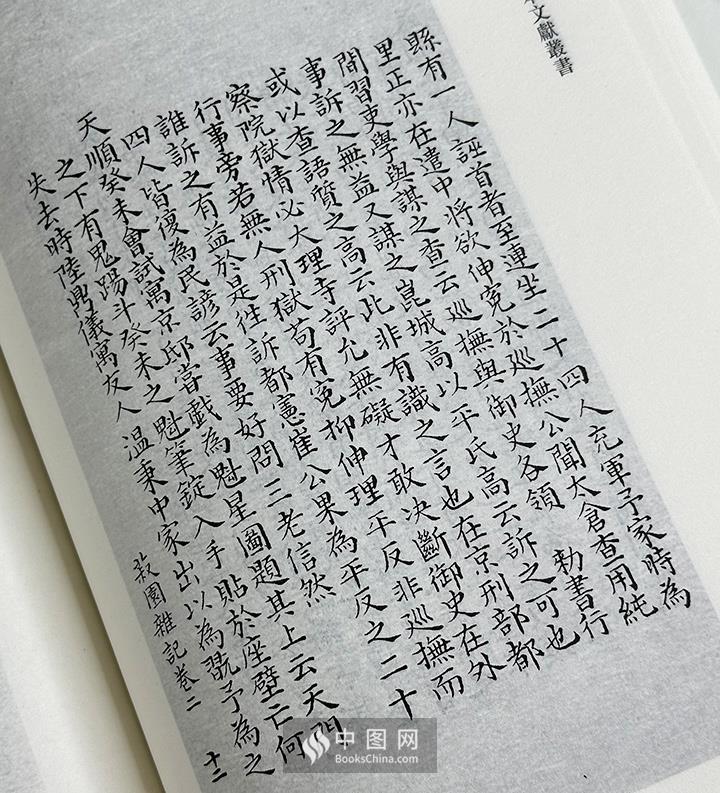 文獻叢書
縣有一人誣首者至連坐二十四人充軍予家時為
里正亦在遣中將欲伸寃於巡撫公聞太倉查用純
閒習吏學與謀之查云巡撫與御史各領　勅書行
事訴之無益又謀之崑城高以平氏高云訴之可也
或以查語質之高云此非有識之言也在京刑部都
察院獄情必大理寺評允無礙才敢决斷御史在外
行事旁若無人刑獄苟有寃抑伸理平反非巡撫而
誰訴之有益於是徃訴都憲崔公果為平反之二十
四人皆復為民諺云事要好問三老信然
天順癸未會試寓京邸嘗戲為魁星圖題其上云天門
之下有鬼踢斗癸未之魁筆錠入手貼於座壁亡何
失去時陸鼎儀寓友人温秉中家出以為翫予為之
菽園雜記卷二　十二
中图网
BooksChina.com